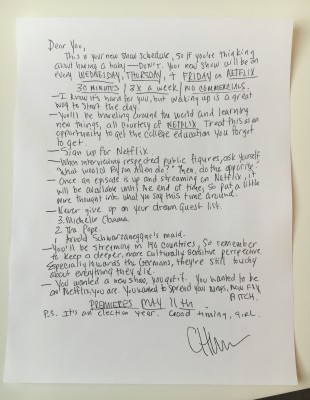 Dear You,
This is your new show schedule, so if you're thinking
about having a baby—DON'T. Your new show will be on
every WEDNESDAY, THURSDAY, + FRIDAY on NETFLIX
30 MINUTES / 3X a week / NO COMMERCIALS.
— I know it's hard for you, but waking up is a great
way to start the day.
— You'll be traveling around the world and learning
new things, all courtesy of NETFLIX. Treat this as an
opportunity to get the college education you forgot
to get.
— Sign up for Netflix
— When interviewing respected public figures, ask yourself
"What would do?" Then, do the opposite.
— Once an episode is up and streaming on Netflix, it
will be available until the end of time, so put a little
more thought into what you say this time around.
— Never give up on your dream guest list.
3. Michelle Obama
2. The Pope
1. Arnold Schwarzenegger's maid.
— You'll be streaming in 190 countries, so remember
to keep a deeper, more culturally sensitive perspective
Especially towards the Germans, they're still touchy
about everything they did.
— You wanted a new show, you got it. You wanted to be
on Netflix, you are. You wanted to spread your wings, now FLY,
BITCH.
PREMIERES MAY 11th
P.S. It's an election year. Good timing, girl.